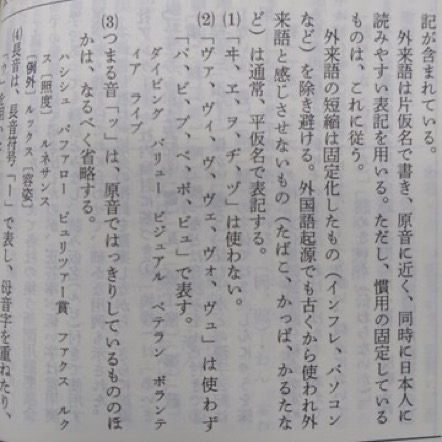 記が含まれている。
外来語は片仮名で書き、原音に近く、同時に日本人に
読みやすい表記を用いる。ただし、慣用の固定している
ものは、これに従う。
外来語の短縮は固定化したもの（インフレ、パソコン
など）を除き避ける。外国語起源でも古くから使われ外
来語と感じさせないもの（たばこ、かっぱ、かるたな
ど）は通常、平仮名で表記する。
⑴「ヰ、ヱ、ヲ、ヂ、ヅ」は使わない。
⑵「ヴァ、ヴィ、ヴ、ヴェ、ヴォ、ヴュ」は使わず
「バ、ビ、ブ、ベ、ボ、ビュ」で表す。
ダイビング バリュー ビジュアル ベテラン ボランテ
ィア ライブ
⑶つまる音「ッ」は、原音ではっきりしているもののほ
かは、なるべく省略する。
ハシシュ バファロー ピュリツァー賞 ファクス ルク
ス［照度］ ルネサンス
［例外］ ルックス［容姿］
⑷長音は、長音符号「ー」で表し、母音字を重ねたり、